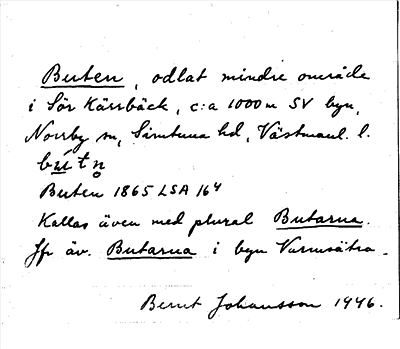 Buten, odlat mindre område
i Sör Kärrbäck, c:a 1000 m SV byn,
Norrby sn, Simtuna hd, Västmanl. l.
bútn̥
Buten 1865 LSA 164
Kallas även med plural Butarna.
Jfr äv. Butarna i byn Varmsätra.
Bernt Johansson 1946.